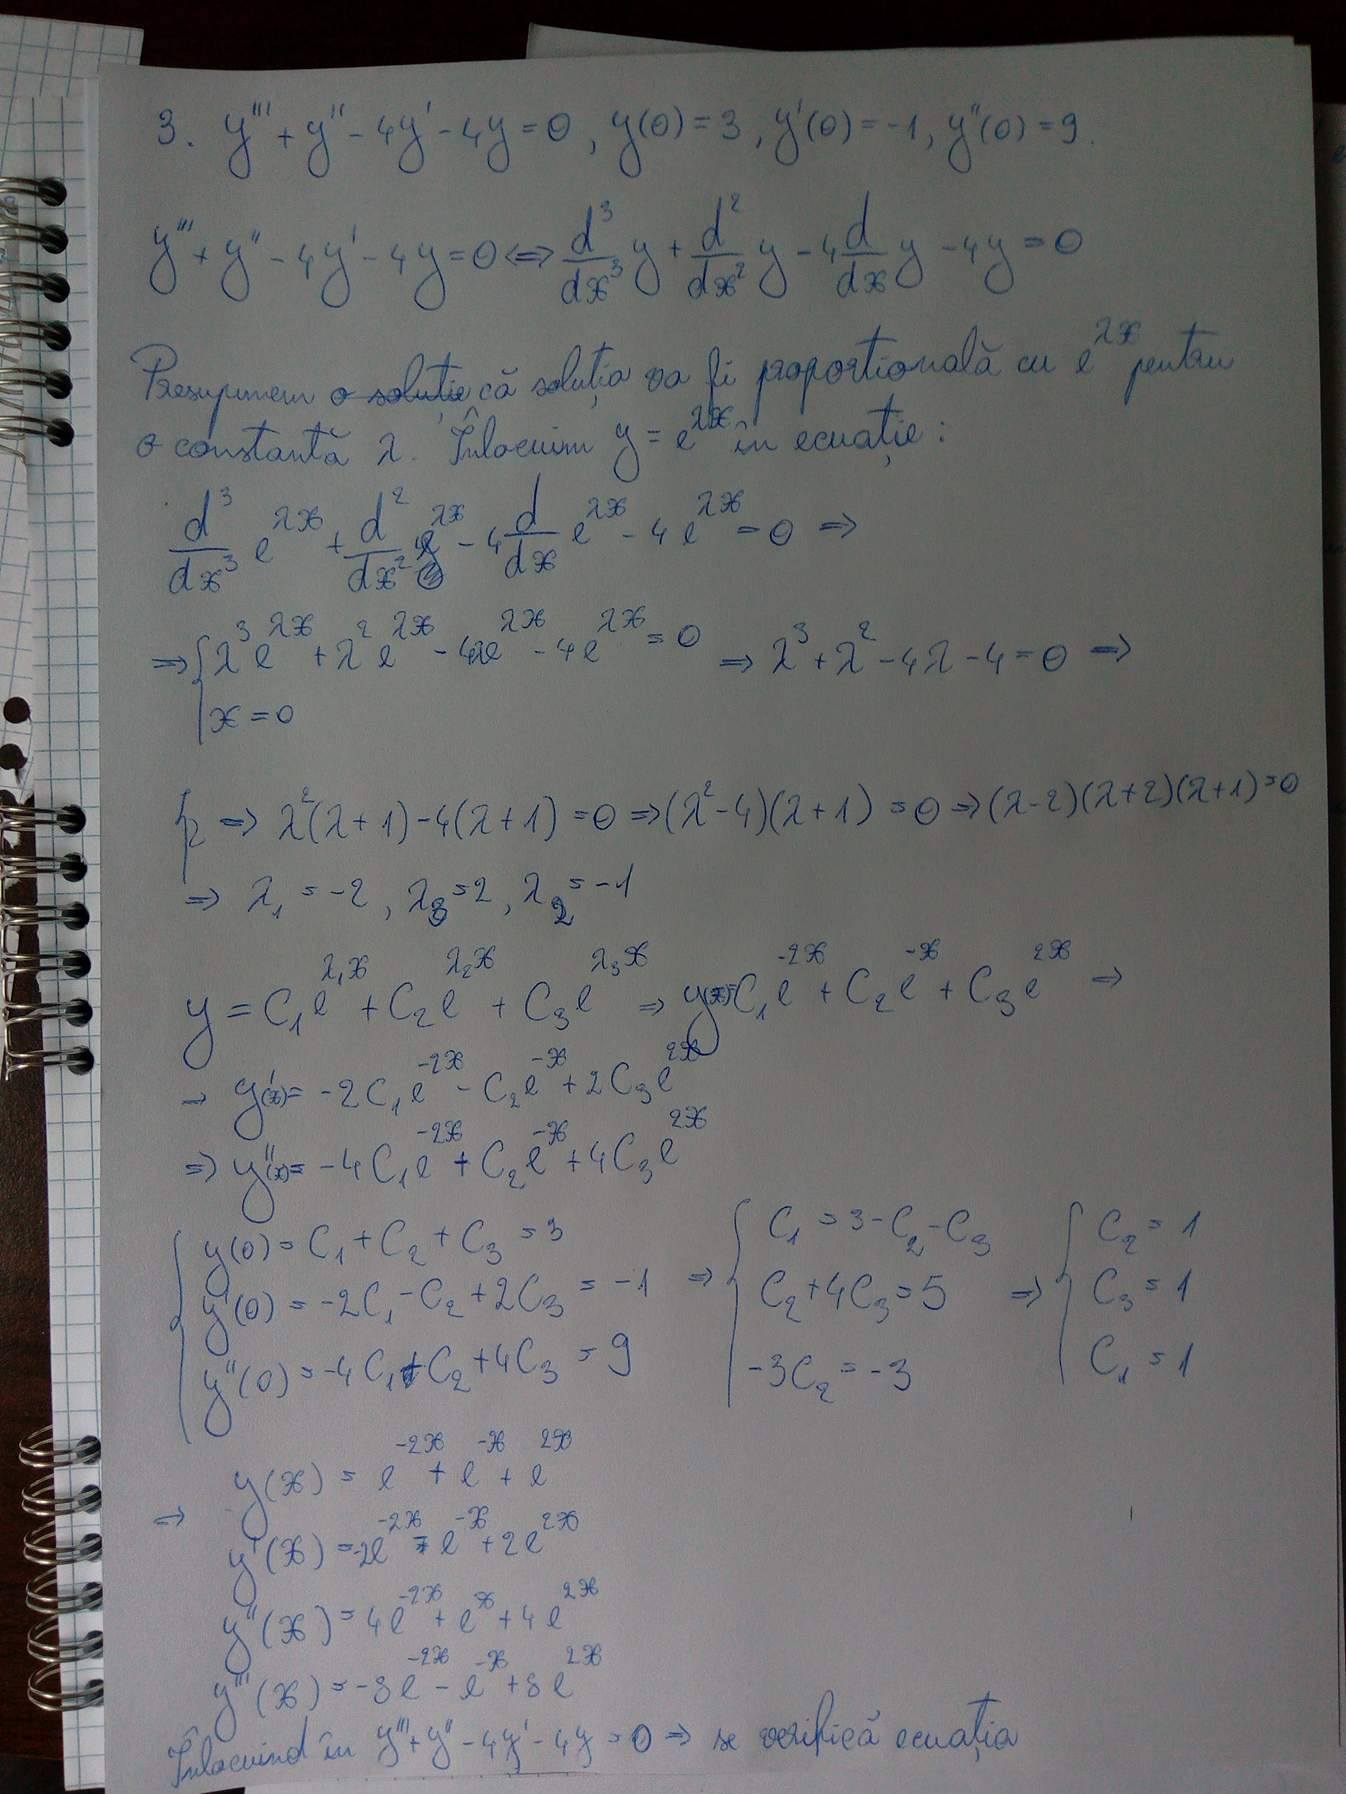 3. y''' + y'' - 4y' - 4y = 0, y(0) = 3, y'(0) = -1, y''(0) = 9.
y''' + y'' - 4y' - 4y = 0 <=> d³/dx³ y + d²/dx² y - 4 d/dx y - 4y = 0
Presupunem o soluție că soluția va fi proporțională cu e^λx pentru
o constantă λ. Înlocuim y = e^λx în ecuație:
d³/dx³ e^λx + d²/dx² e^λx - 4 d/dx e^λx - 4e^λx = 0 =>
=> { λ³e^λx + λ²e^λx - 4λe^λx - 4e^λx = 0 => λ³ + λ² - 4λ - 4 = 0 =>
x = 0
=> λ²(λ+1) - 4(λ+1) = 0 => (λ²-4)(λ+1) = 0 => (λ-2)(λ+2)(λ+1) = 0
=> λ₁ = -2, λ₃ = 2, λ₂ = -1
y = C₁e^λ₁x + C₂e^λ₂x + C₃e^λ₃x => y(x) = C₁e^-2x + C₂e^-x + C₃e^2x =>
=> y'(x) = -2C₁e^-2x - C₂e^-x + 2C₃e^2x
=> y''(x) = -4C₁e^-2x + C₂e^-x + 4C₃e^2x
{ y(0) = C₁ + C₂ + C₃ = 3 => { C₁ = 3 - C₂ - C₃ => { C₂ = 1
y'(0) = -2C₁ - C₂ + 2C₃ = -1 C₂ + 4C₃ = 5 C₃ = 1
y''(0) = -4C₁ + C₂ + 4C₃ = 9 -3C₂ = -3 C₁ = 1
=> y(x) = e^-2x + e^-x + e^2x
y'(x) = -2e^-2x - e^-x + 2e^2x
y''(x) = 4e^-2x + e^x + 4e^2x
y'''(x) = -8e^-2x - e^-x + 8e^2x
Înlocuind în y''' + y'' - 4y' - 4y = 0 => se verifică ecuația